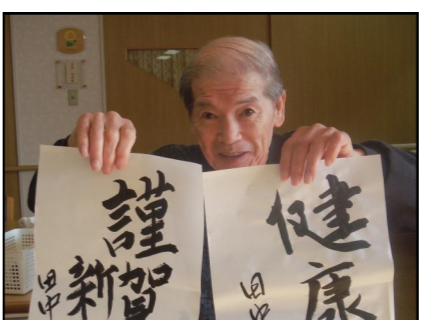 謹賀
新
田中
健康
田中